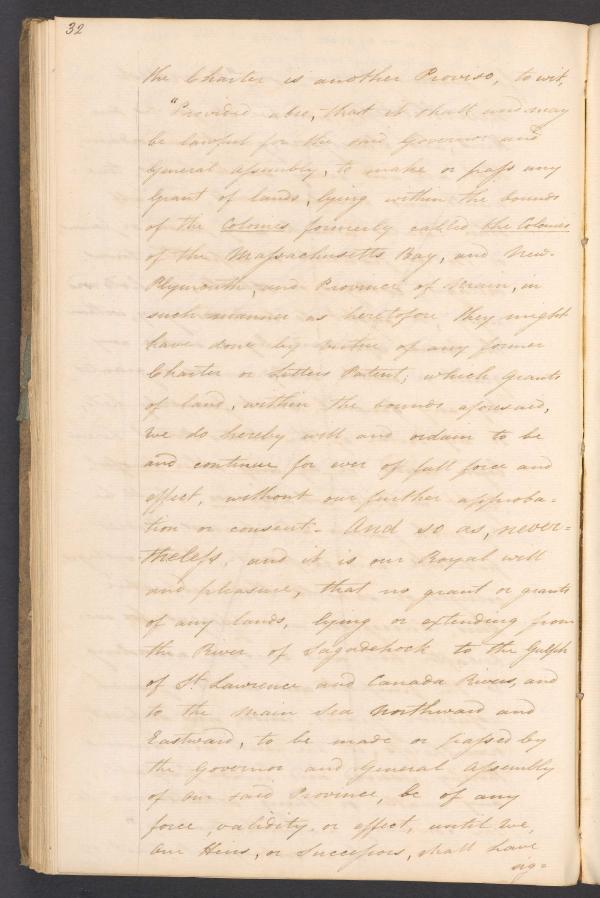 32
the Charter is another Proviso, to wit,
"Provided also, that it shall and may
be lawful for the said Governor and
General Assembly, to make or pass any
Grant of lands, lying within the bounds
of the Colonies formerly called the Colonies
of the Massachusetts Bay, and New-
Plymouth, and Province of Main, in
such manner as heretofore they might
have done by virtue of any former
Charter or Letters Patent; which Grants
of land, within the bounds aforesaid,
we do hereby will and ordain to be
and continue for ever of full force and
effect, without our further approba=
tion or consent - And so as, never=
theless, and it is our Royal will
and pleasure, that no grant or grants
of any lands, lying or extending from
the River of Sagadehock to the Gulph
of St Lawrence and Canada Rivers, and
to the main Sea Northward and
Eastward, to be made or passed by
the Governor and General Assembly
of our said Province, be of any
force, validity, or effect, until We,
Our Heirs, or Successors, shall have
sig=